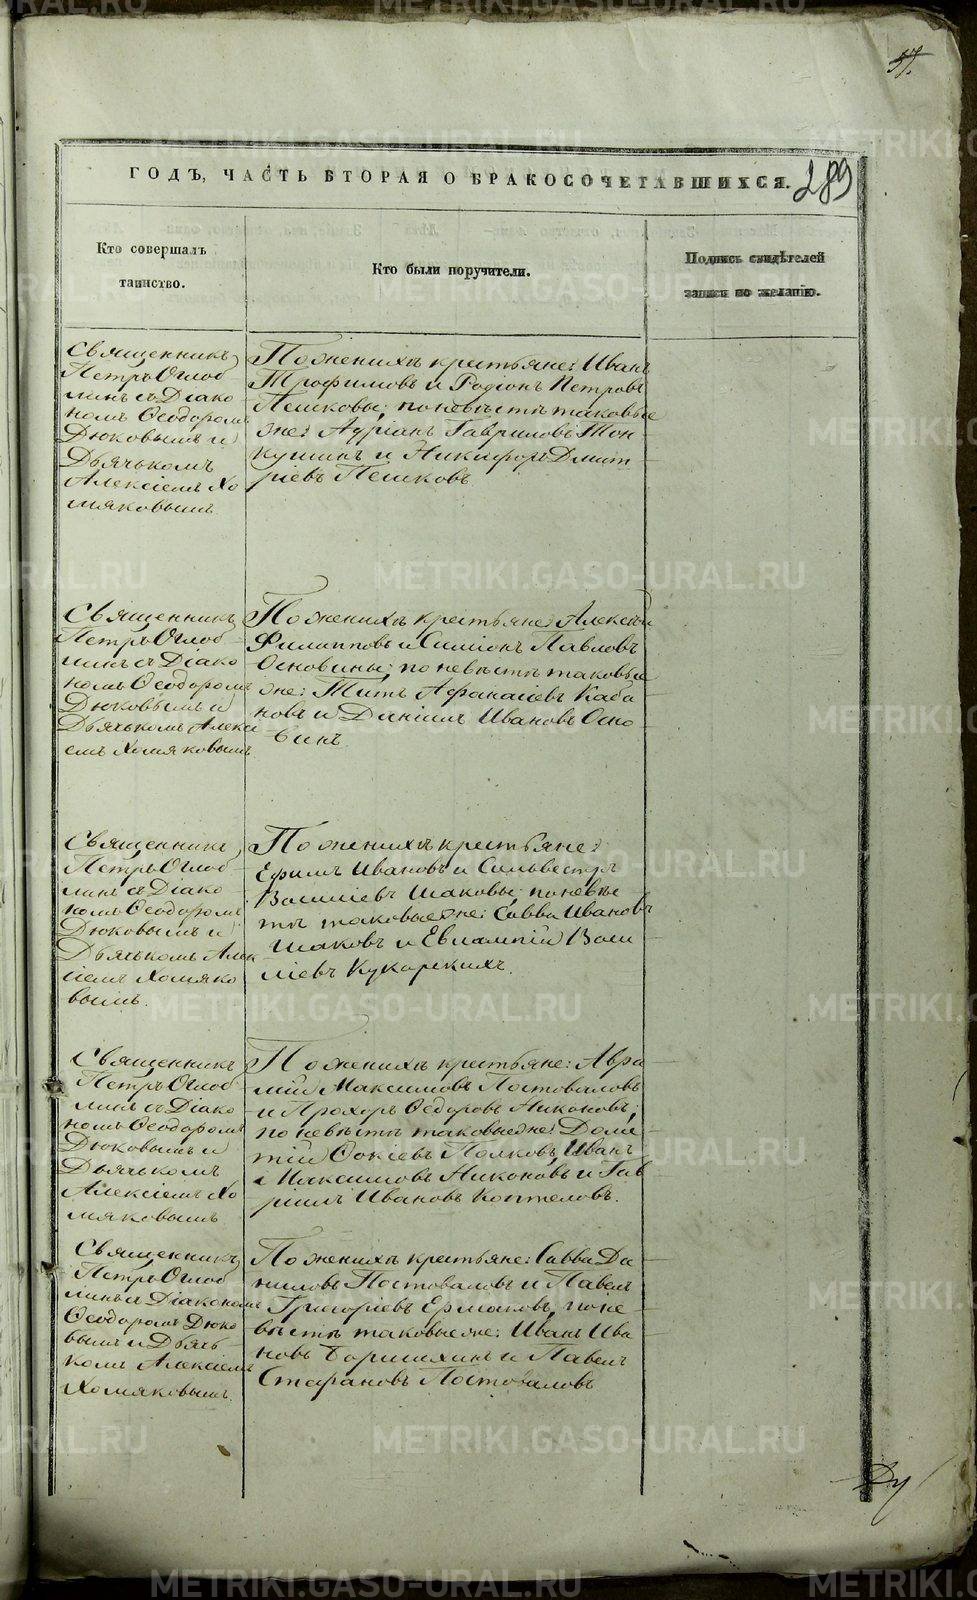 57.
289
ГОДЪ, ЧАСТЬ ВТОРАЯ О БРАКОСОЧЕТАВШИХСЯ.
Кто совершалъ
таинство.
Кто были поручители.
Подпись свидѣтелей
записи по желанію.
Священникъ
Петръ Оглоб
линъ съ Діако
номъ Ѳеодоромъ
Дюковымъ и
Дьячькомъ
Алексіемъ Хо
мяковымъ.
По женихѣ крестьяне: Иванъ
Трофимовъ и Родіонъ Петровъ
Пешковы; по невѣстѣ таковые
же: Адріанъ Гавриловъ Тон
кушинъ и Никифоръ Дмит
ріевъ Пешковъ.
Священникъ
Петръ Оглоб
линъ съ Діако
номъ Ѳеодоромъ
Дюковымъ и
Дьячькомъ Алексі
емъ Хомяковымъ.
По женихѣ крестьяне: Алексѣй
Филипповъ и Симіонъ Павловъ
Основины; по невѣстѣ таковые
же: Титъ Афанасіевъ Каба
новъ и Даніилъ Ивановъ Осно
винъ.
Священникъ
Петръ Оглоб
линъ съ Діако
номъ Ѳеодоромъ
Дюковымъ и
Дьячькомъ Алек
сіемъ Хомяко
вымъ.
По женихѣ крестьяне:
Ефимъ Ивановъ и Сильвестръ
Василіевъ Исаковы; по невѣс
тѣ таковые же: Савва Ивановъ
Исаковъ и Евлампій Васи
ліевъ Кукарскихъ.
Священникъ
Петръ Оглоб
линъ съ Діако
номъ Ѳеодоромъ
Дюковымъ и
Дьячькомъ
Алексіемъ Хо
мяковымъ
По женихѣ крестьяне: Авра
мій Максимовъ Постоваловъ
и Прохоръ Ѳедоровъ Никоновъ;
по невѣстѣ таковые же: Доме
тій Фокіевъ Поляковъ, Иванъ
Максимовъ Никоновъ и Гав
рилъ Ивановъ Коптеловъ.
Священникъ
Петръ Оглоб
линъ съ Діакономъ
Ѳеодоромъ Дюко
вымъ и Дьячь
комъ Алексіемъ
Хомяковымъ.
По женихѣ крестьяне: Савва Да
ниловъ Постоваловъ и Павелъ
Григоріевъ Ермаковъ, по не
вѣстѣ таковые же: Иванъ Ива
новъ Барышкинъ и Павелъ
Стефановъ Постоваловъ
METRIKI.GASO-URAL.RU